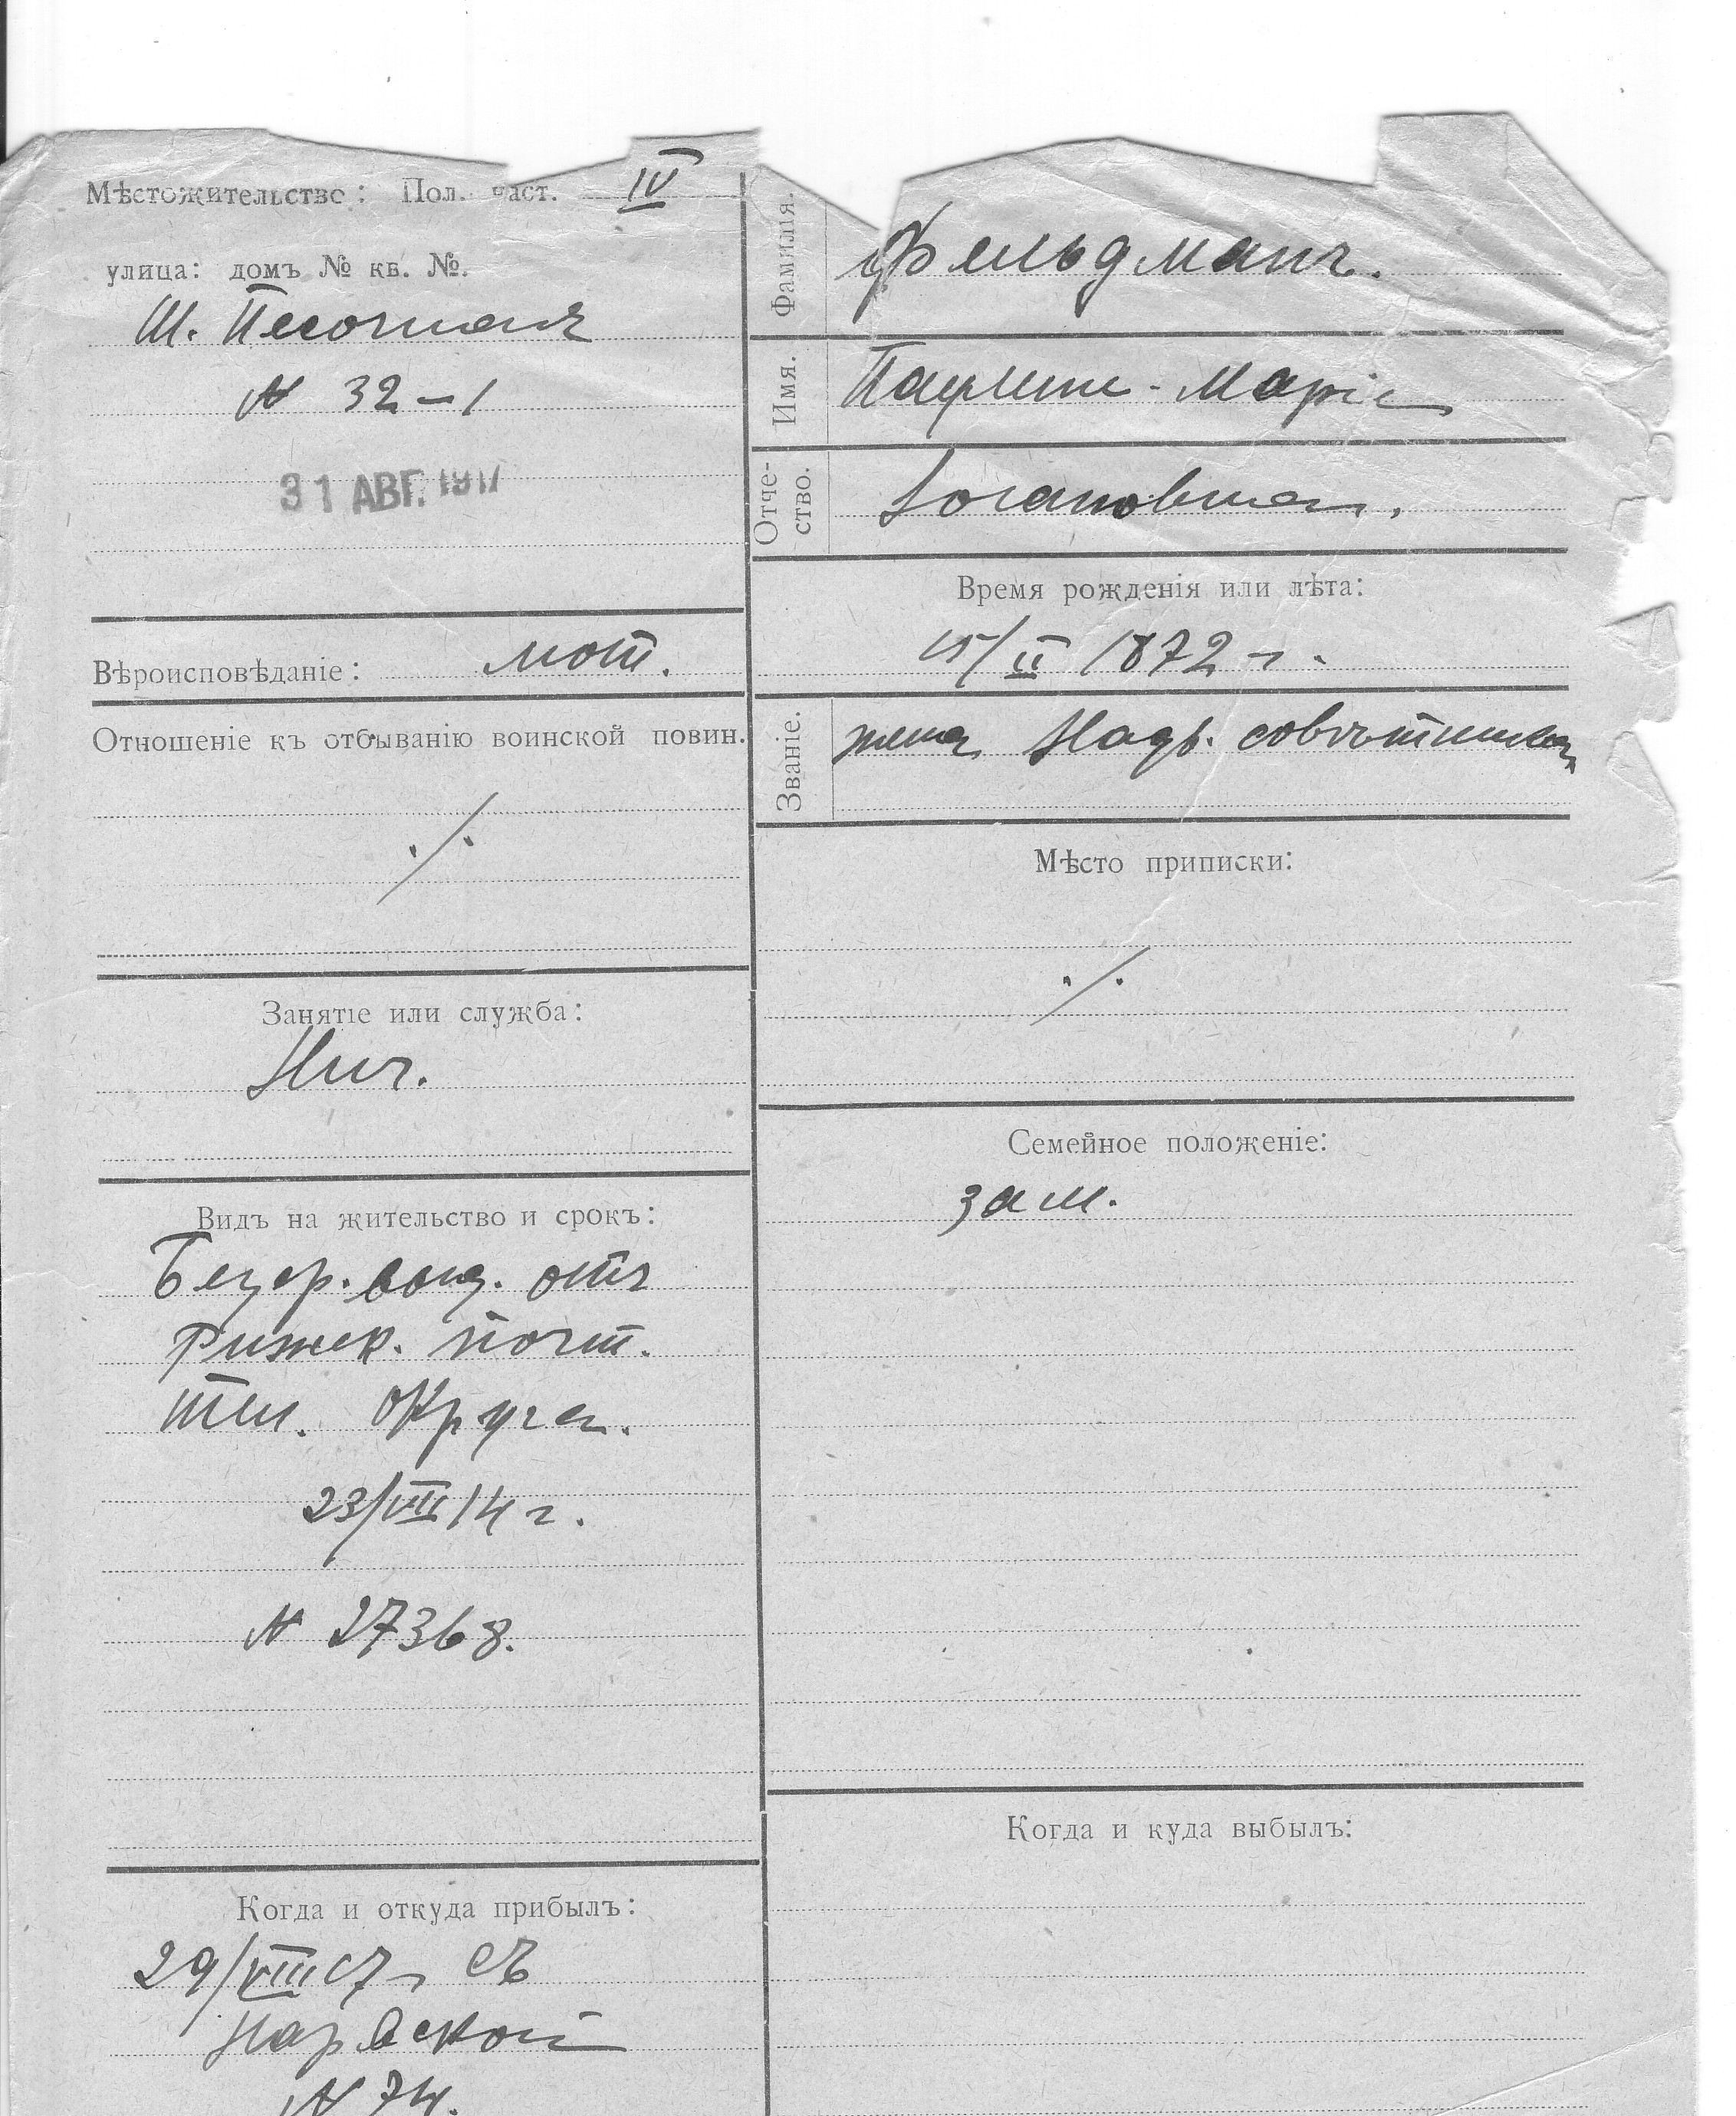 Мѣстожительство: Пол. част. IV
улица: домъ № кв. №.
Ш. Песочная
№ 32-1
31 АВГ. 1917
Вѣроисповѣданіе: лют.
Отношеніе къ отбыванію воинской повин.
./.
Занятіе или служба:
Нич.
Видъ на жительство и срокъ:
Безср. выд. отъ
Рижск. почт.
тел. Округа.
23/VII 14 г.
№ 27368.
Когда и откуда прибылъ:
29/VIII 17 г. съ
Нарвской
№ 74.
Фамилія. Фельдманъ.
Имя. Паулине-Марія
Отчество. Іогановна.
Время рожденія или лѣта:
15/II 1872 г.
Званіе. жена Надв. совѣтника
Мѣсто приписки:
./.
Семейное положеніе:
зам.
Когда и куда выбылъ: